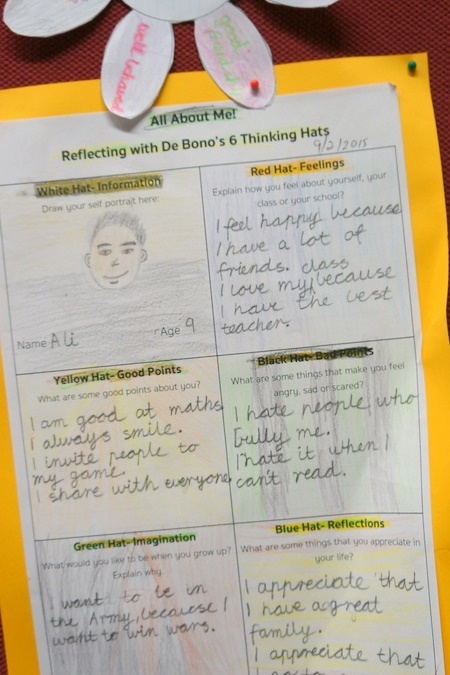 well behaved
good friend
All About Me!
Reflecting with De Bono's 6 Thinking Hats
9/2/2015
White Hat- Information
Draw your self portrait here:
Name Ali
Age 9
Red Hat- Feelings
Explain how you feel about yourself, your
class or your school?
I feel happy because
I have a lot of
friends. class
I love my because
I have the best
teacher.
Yellow Hat- Good Points
What are some good points about you?
I am good at maths
I always smile.
I invite people to
my game.
I share with everyone
Black Hat- Bad Points
What are some things that make you feel
angry, sad or scared?
I hate people who
bully me.
I hate it when I
can't read.
Green Hat- Imagination
What would you like to be when you grow up?
Explain why.
I want to be in
the Army, because I
want to win wars.
Blue Hat- Reflections
What are some things that you appreciate in
your life?
I appreciate that
I have a great
family.
I appreciate that